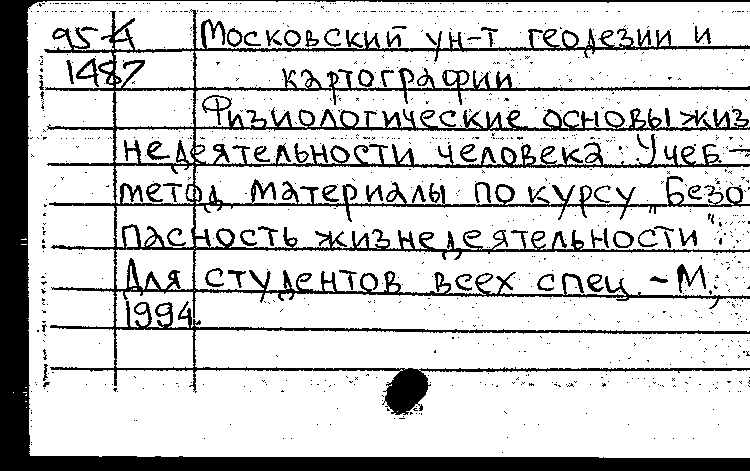 95-4 Московский ун-т геодезии и
1487 картографии
Физиологические основы жиз
недеятельности человека: Учеб-
метод. материалы по курсу „Безо
пасность жизнедеятельности":
Для студентов всех спец. - М.,
1994.